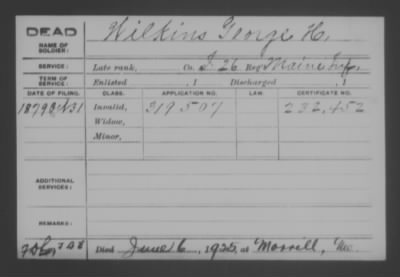 DEAD
NAME OF SOLDIER: Wilkins George H.
SERVICE: Late rank, Co. I 26 Reg't Maine Inf.
TERM OF SERVICE: Enlisted , 1 Discharged , 1
DATE OF FILING. CLASS. APPLICATION NO. LAW. CERTIFICATE NO.
1879 31 Invalid, 319507 232,452
Widow,
Minor,
ADDITIONAL SERVICES:
REMARKS:
Died June 6, 1925, at Morrill, Me.